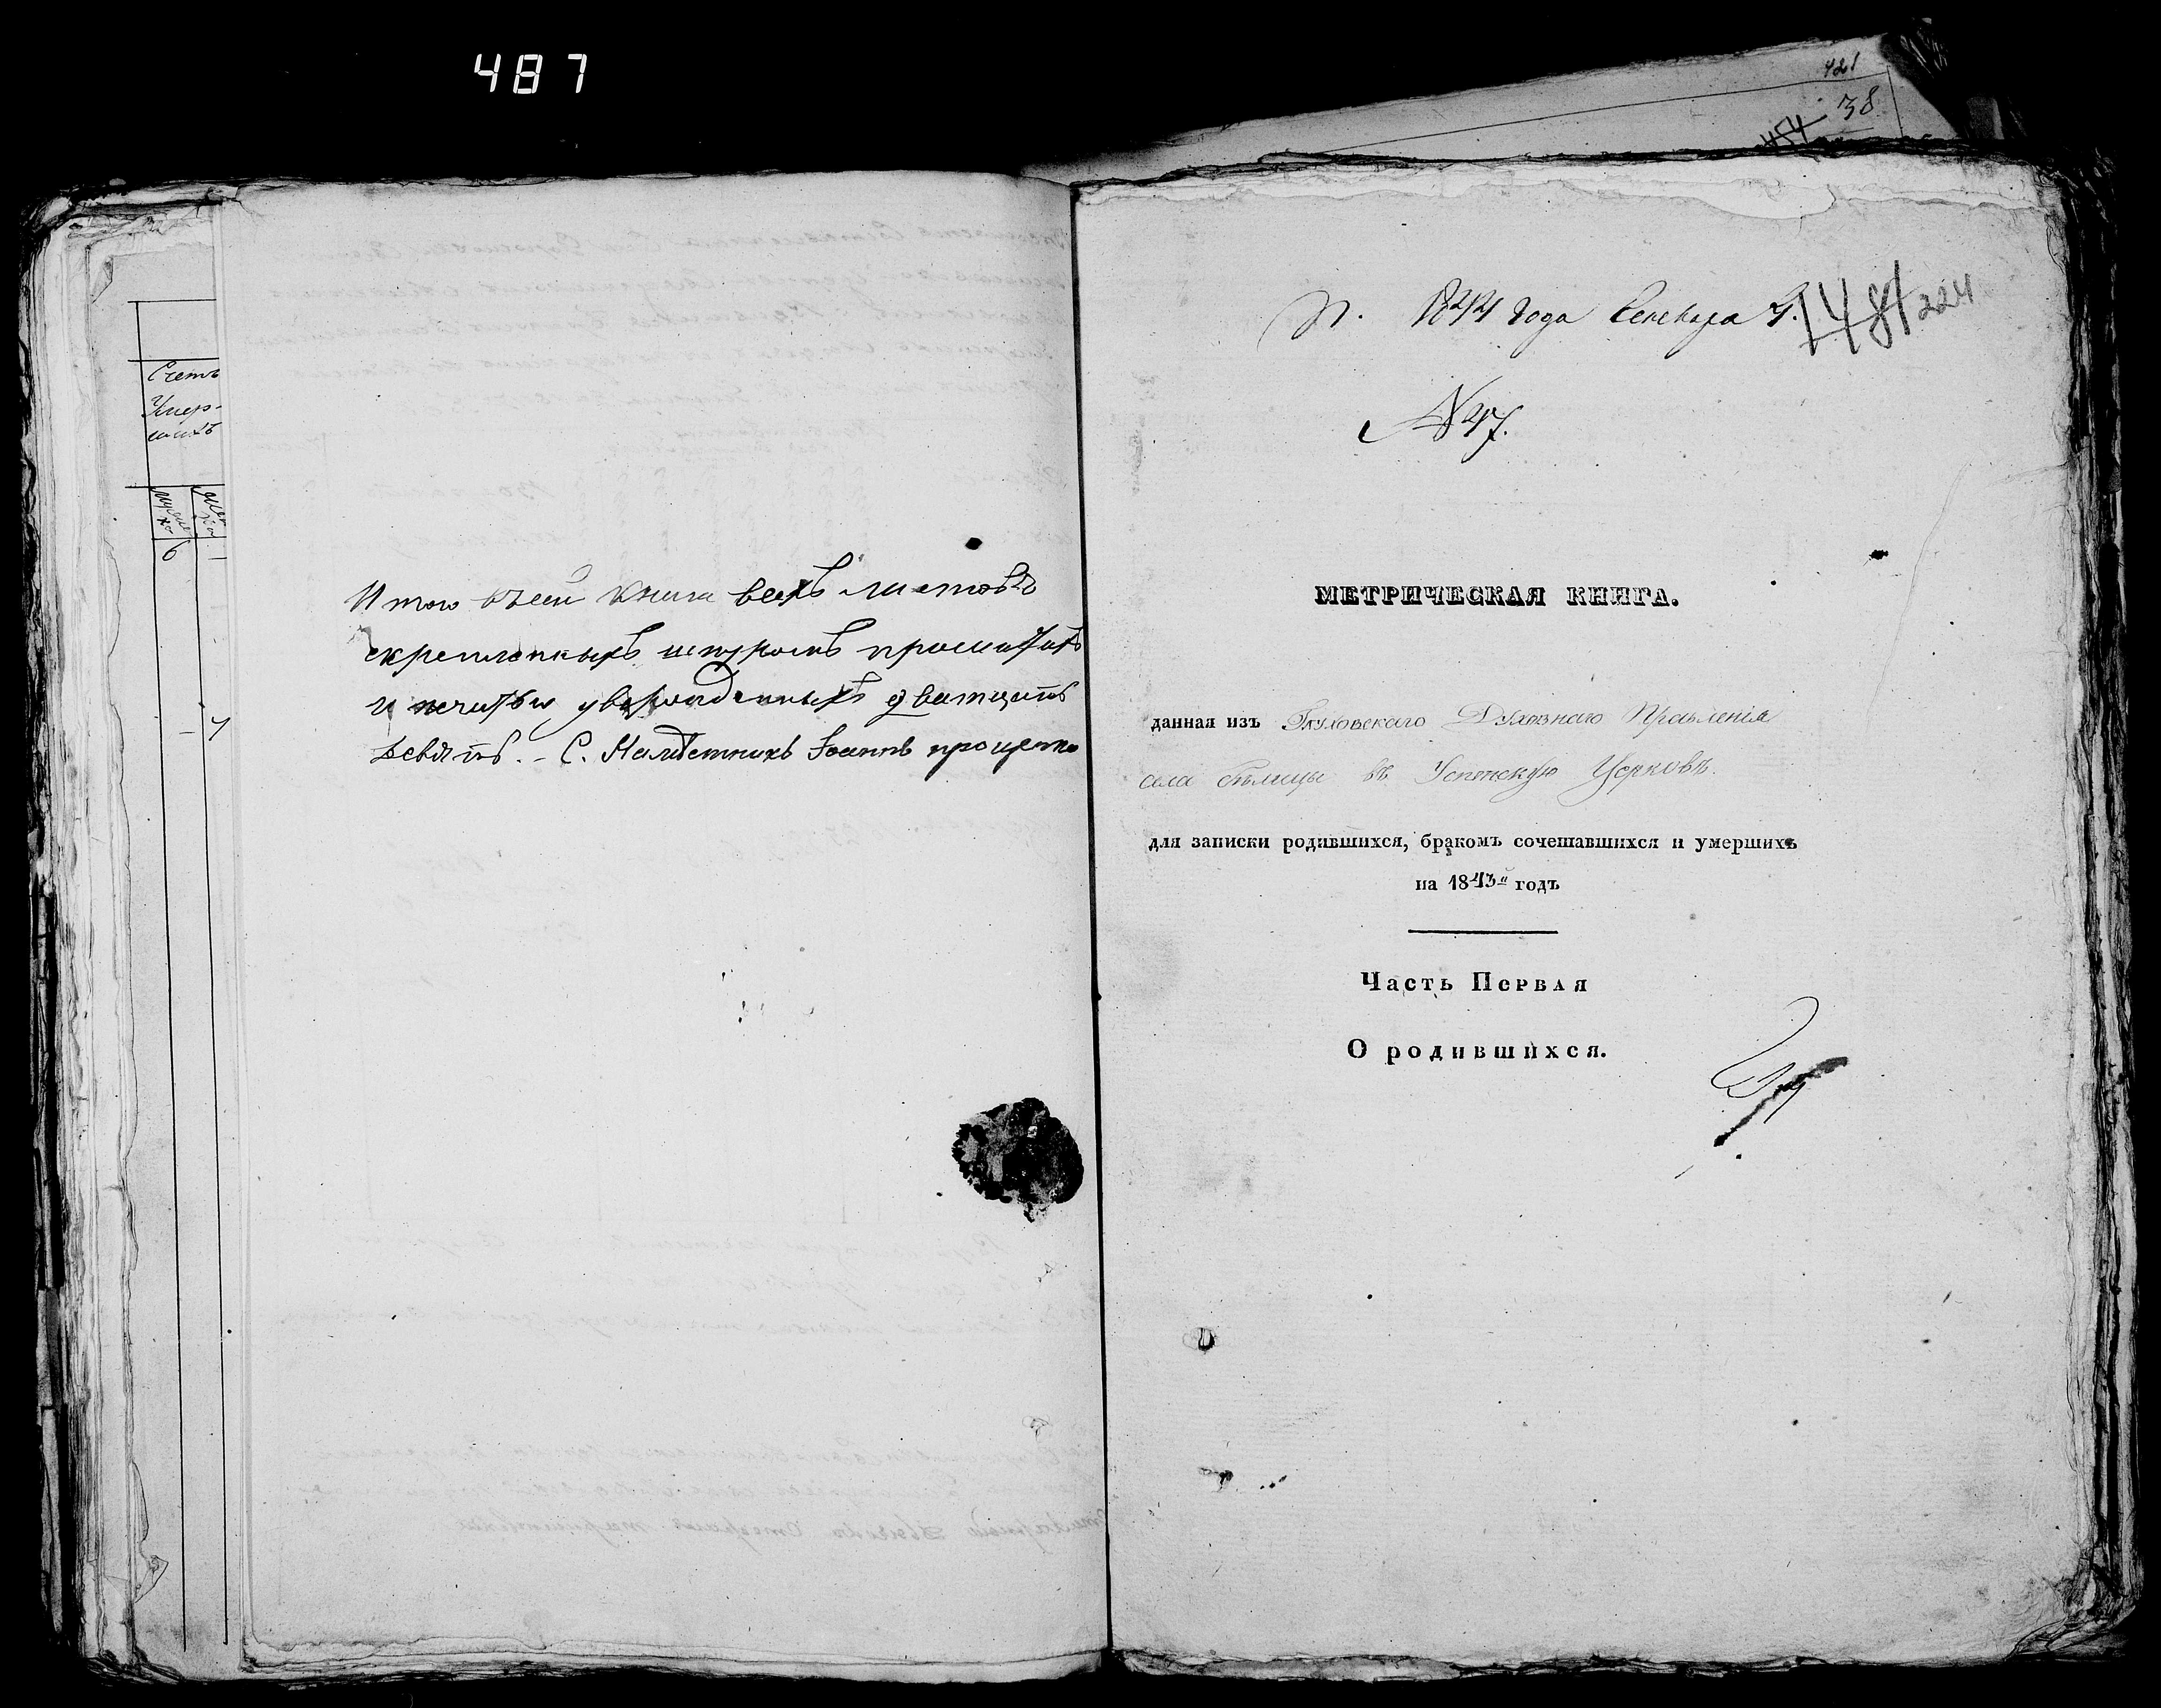 487
421
38
454
Счетъ
Умер-
шихъ
6
7
Итого въ сей книги всехъ листовъ
скрепленныхъ шнуромъ
и печатью дватцать
девять. - С. Наместникъ Іоаннъ проценко
П. 1844 года Генваря 7.
1481 224
№ 47.
МЕТРИЧЕСКАЯ КНИГА.
данная изъ Глуховскаго Духовнаго Правленія
села Бѣлицы въ Успенскую Церковь.
для записки родившихся, бракомъ сочетавшихся и умершихъ
на 1843й годъ
Часть Первая
О родившихся.